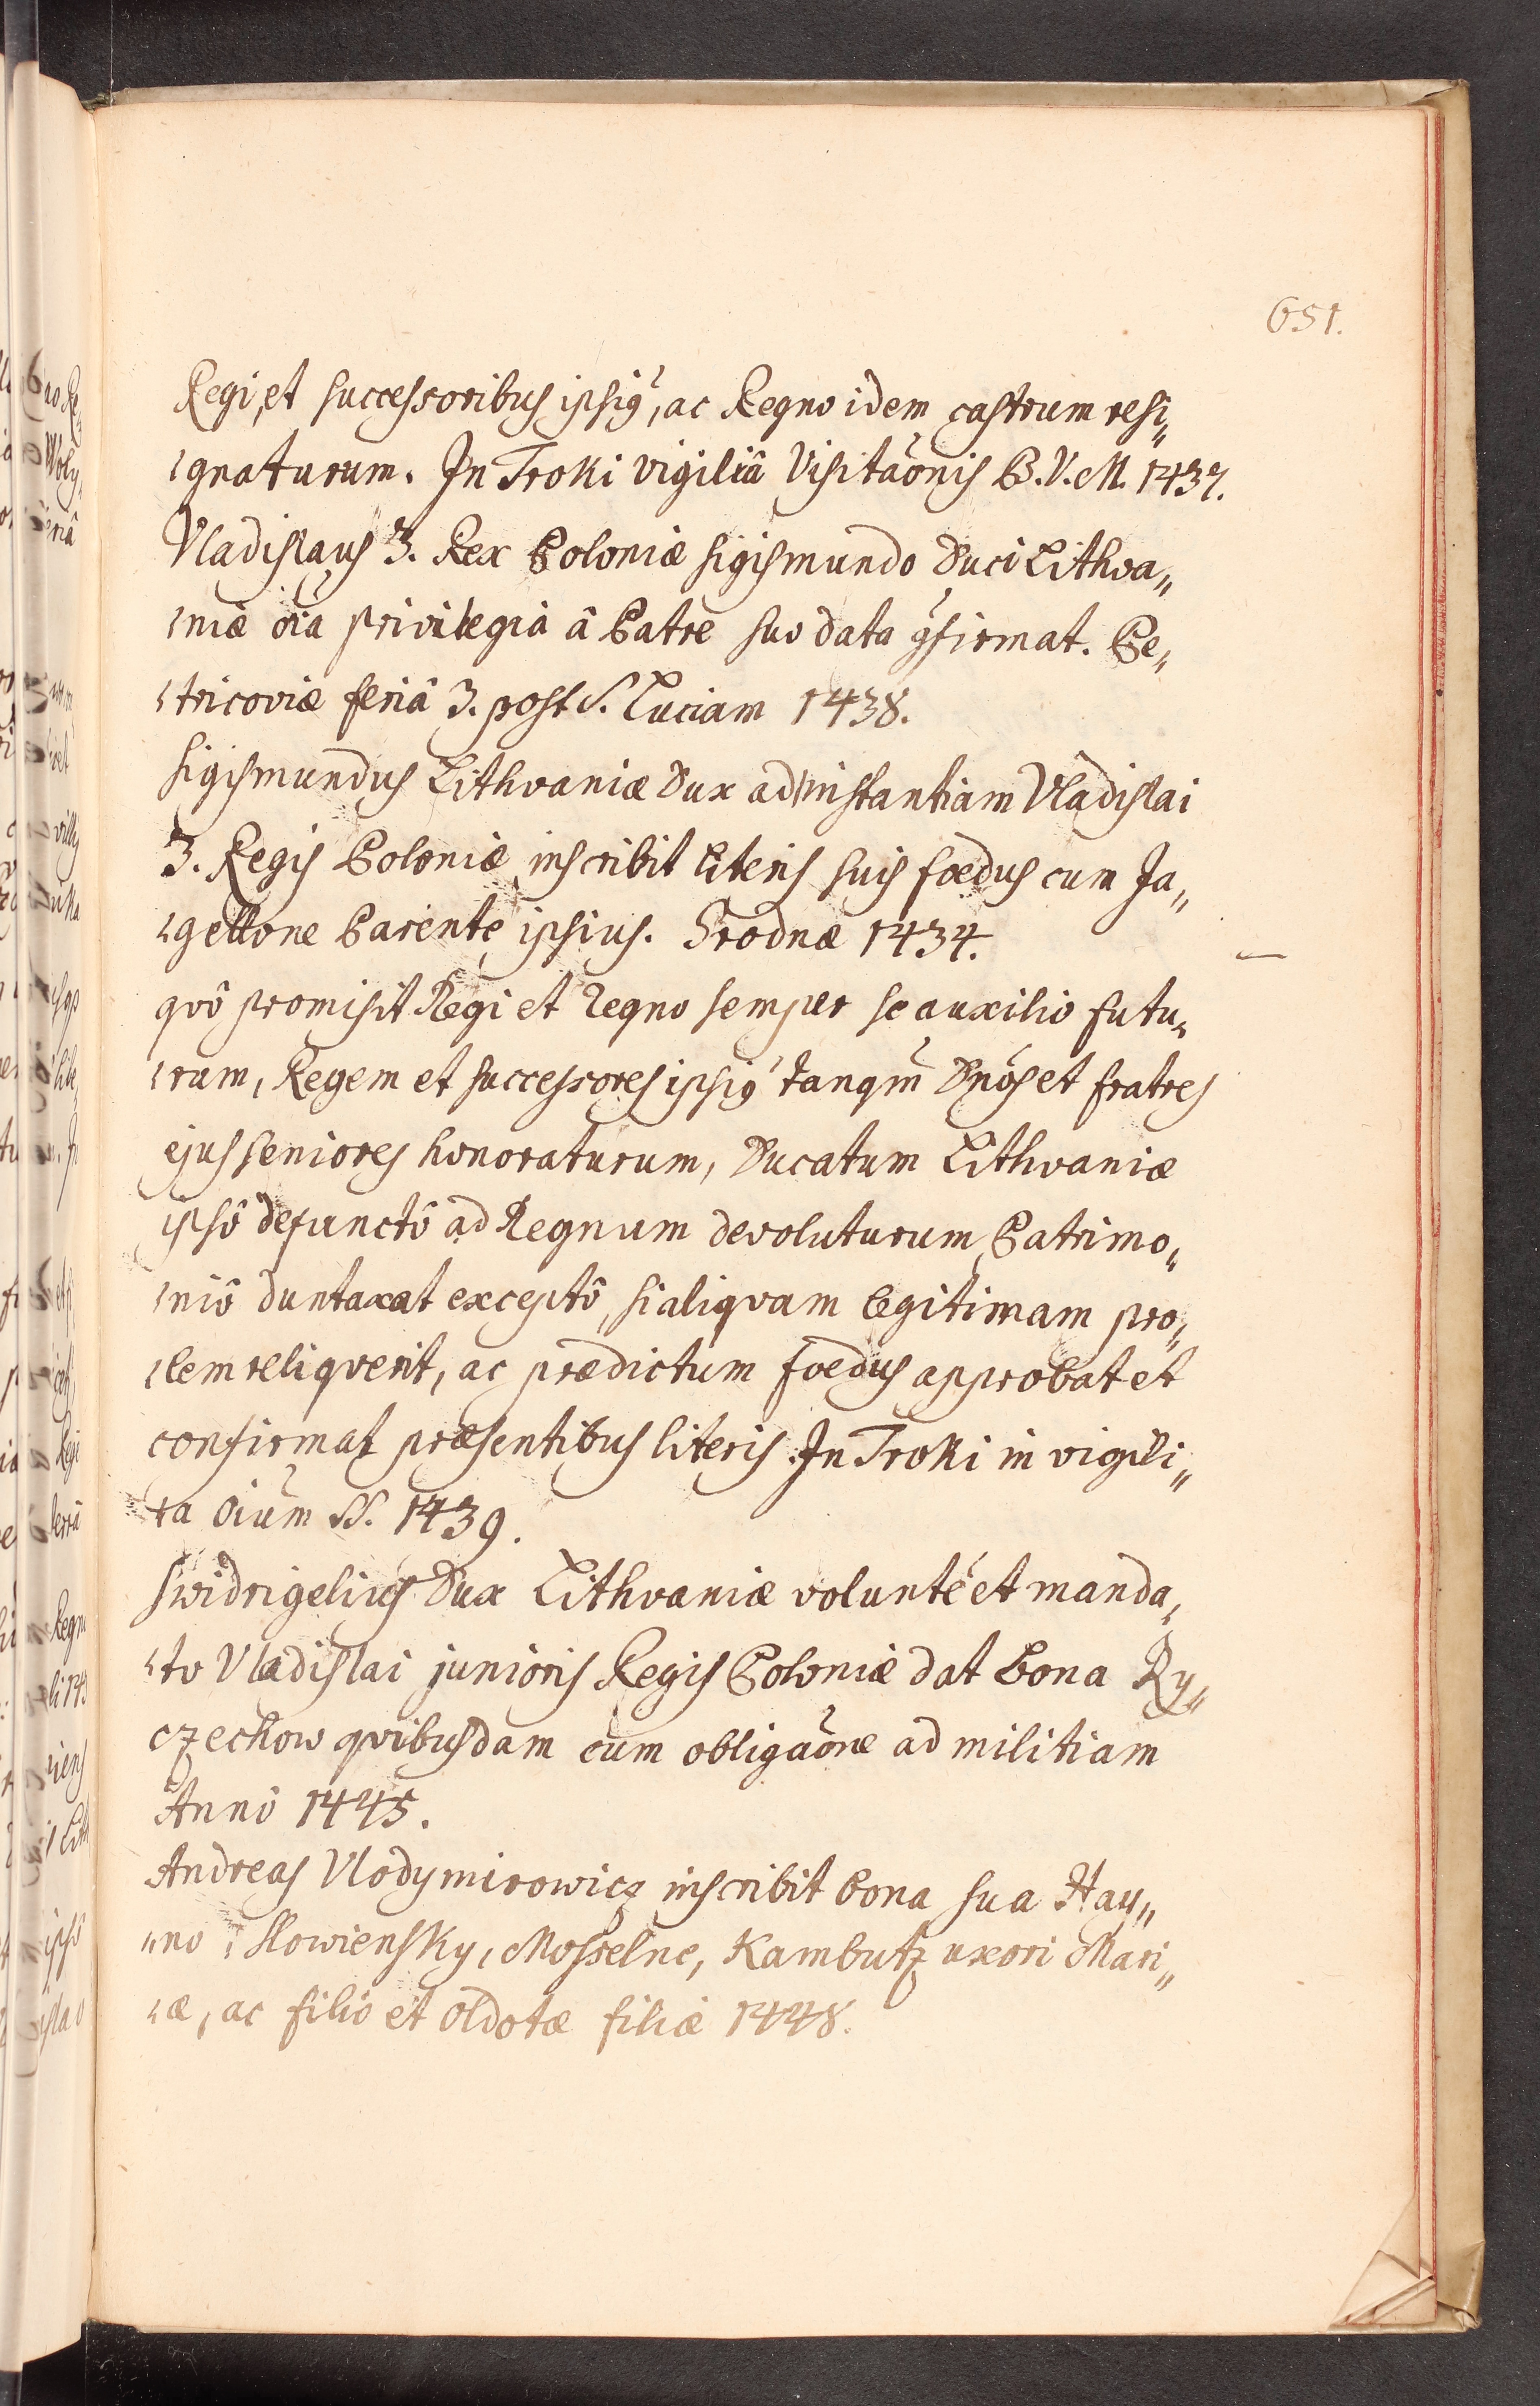 651.
Regi, et successoribus ipsiꝰ, ac Regno idem castrum resi„
gnaturum. In Troki vigiliâ Visitãonis B. V. M. 1437.
Vladislaus 3. Rex Poloniæ Sigismundo Duci Lithva„
niæ oĩa privilegia â Patre suo data ꝯfirmat. Pe„
tricoviæ feriâ 3. post S. Luciam 1438.
Sigismundus Lithvaniæ Dux ad instantiam Vladislai
3. Regis Poloniæ inscribit literis suis foedus cum Ja„
gellone Parente ipsius. Grodnæ 1434.
qvô promisit Regi et Regno semper se auxilio futu„
rum, Regem et successores ipsiꝰ tanqm̃ Dnõs et fratres
ejus seniores honoraturum, Ducatum Lithvaniæ
ipsô defunctô ad Regnum devoluturum, Patrimo„
niô duntaxat exceptô, si aliqvam legitimam pro„
lem reliqverit, ac prædictum foedus approbat et
confirmat præsentibus literis. In Troki in vigili„
a oiũm SS. 1439.
Swidrigelius Dux Lithvaniæ voluntẽ et manda„
to Vladislai junioris Regis Poloniæ dat bona Ry„
czechow qvibusdam cum obligãone ad militiam
Annô 1445.
Andreas Vlodymirowicz inscribit bona sua Hay„
„no, Slowiensky, Mosselne, Kambutz uxori Mari„
æ, ac filio et Oldotæ filiæ 1448.